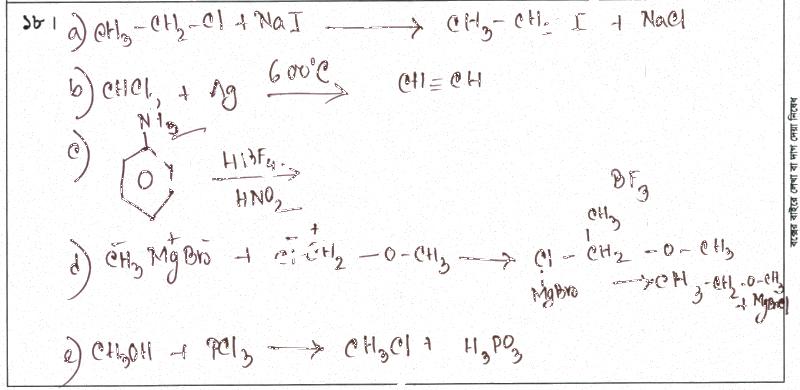 ১৮। a) CH3-CH2-Cl + NaI ⟶ CH3-CH2-I + NaCl
b) CHCl3 + Ag 600°C ⟶ CH≡CH
c) NH2 HBF4 HNO2 ⟶
BF3
d) CH3MgBr + Cl-CH2-O-CH3 ⟶ Cl-CH2-O-CH3
CH3
MgBr ⟶ CH3-CH2-O-CH3 + MgBrCl
e) CH3OH + PCl3 ⟶ CH3Cl + H3PO3
বক্সের বাইরে লেখা বা দাগ দেয়া নিষেধ